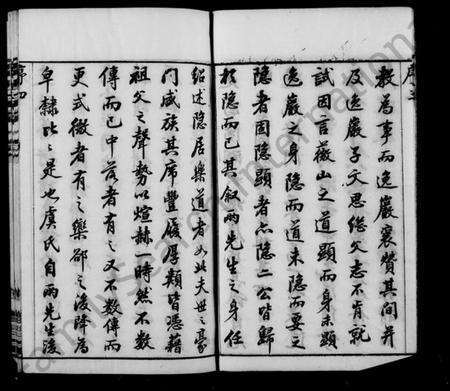 教為事而逸巖襄贊其間并
及逸巖子文思繼父志不肯就
試因言薇山之道顯而身未顯
逸巖之身隱而道未隱而要之
隱者固隱顯者亦隱二公皆歸
於隱而已其叙兩先生之身任
紹述隱居樂道者如此夫世之豪
門威族其席豐履厚類皆憑藉
祖父之聲勢以煊赫一時然不數
傳而已中落者有之又不數傳而
更式微者有之欒郤之後降為
皁隸比比是也虞氏自兩先生後
序四